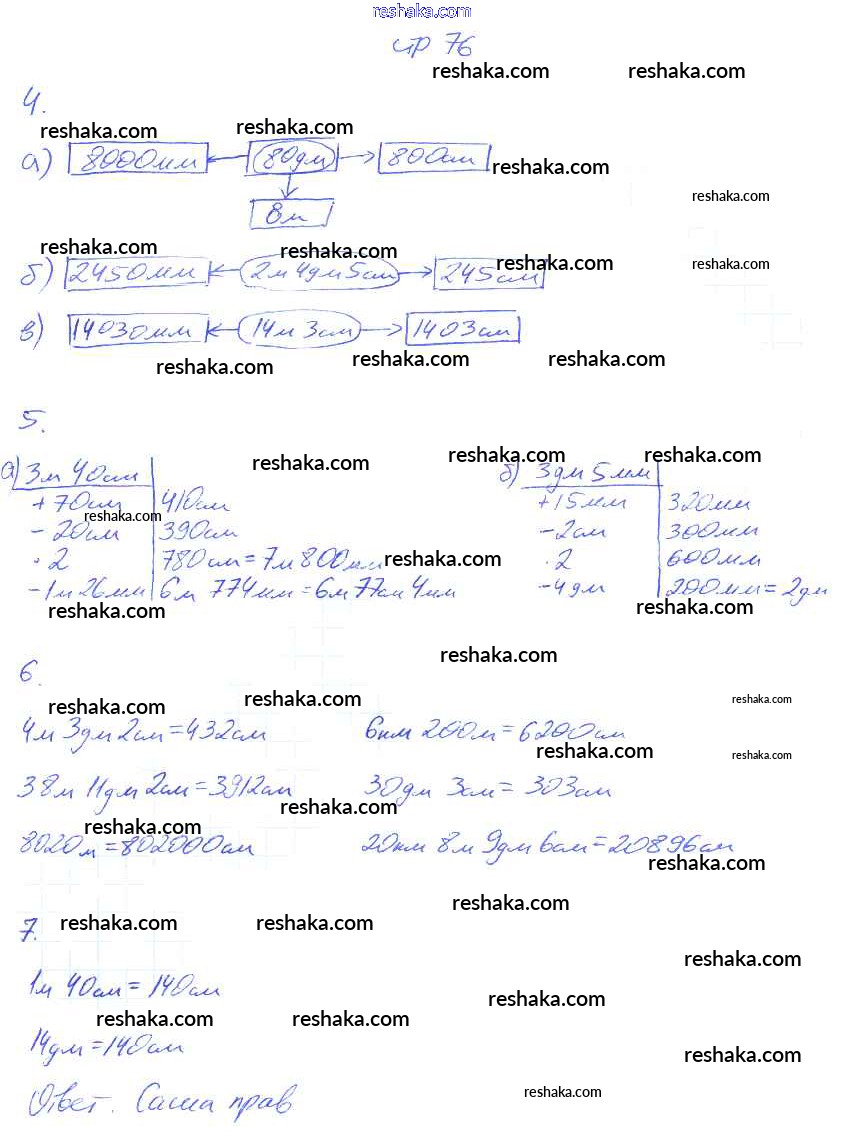 reshaka.com
стр 76
reshaka.com reshaka.com
4.
reshaka.com reshaka.com
а) 8000мм ← 80дм → 800см reshaka.com
reshaka.com
8м
reshaka.com reshaka.com
б) 2450мм ← 2м 4дм 5см → 245см reshaka.com reshaka.com
в) 14030мм ← 14м 3см → 1403см
reshaka.com reshaka.com reshaka.com
5.
reshaka.com reshaka.com reshaka.com
а) 3м 40см
+70см 410см
reshaka.com
-20см 390см
·2 780см=7м 800мм reshaka.com
-1м 26мм 6м 774мм=6м 77см 4мм
reshaka.com
б) 3дм 5мм
+15мм 320мм
-2см 300мм
·2 600мм
reshaka.com
-4дм 200мм=2дм
reshaka.com
reshaka.com
6.
reshaka.com reshaka.com reshaka.com
4м 3дм 2см=432см 6км 200м=6200см
reshaka.com reshaka.com
38м 11дм 2см=3912см 30дм 3см=303см
reshaka.com
reshaka.com
8020м=802000см 20км 8м 9дм 6см=20896см
reshaka.com
reshaka.com
7. reshaka.com reshaka.com
reshaka.com
1м 40см=140см
reshaka.com
reshaka.com reshaka.com
14дм=140см
reshaka.com
Ответ. Саша прав
reshaka.com